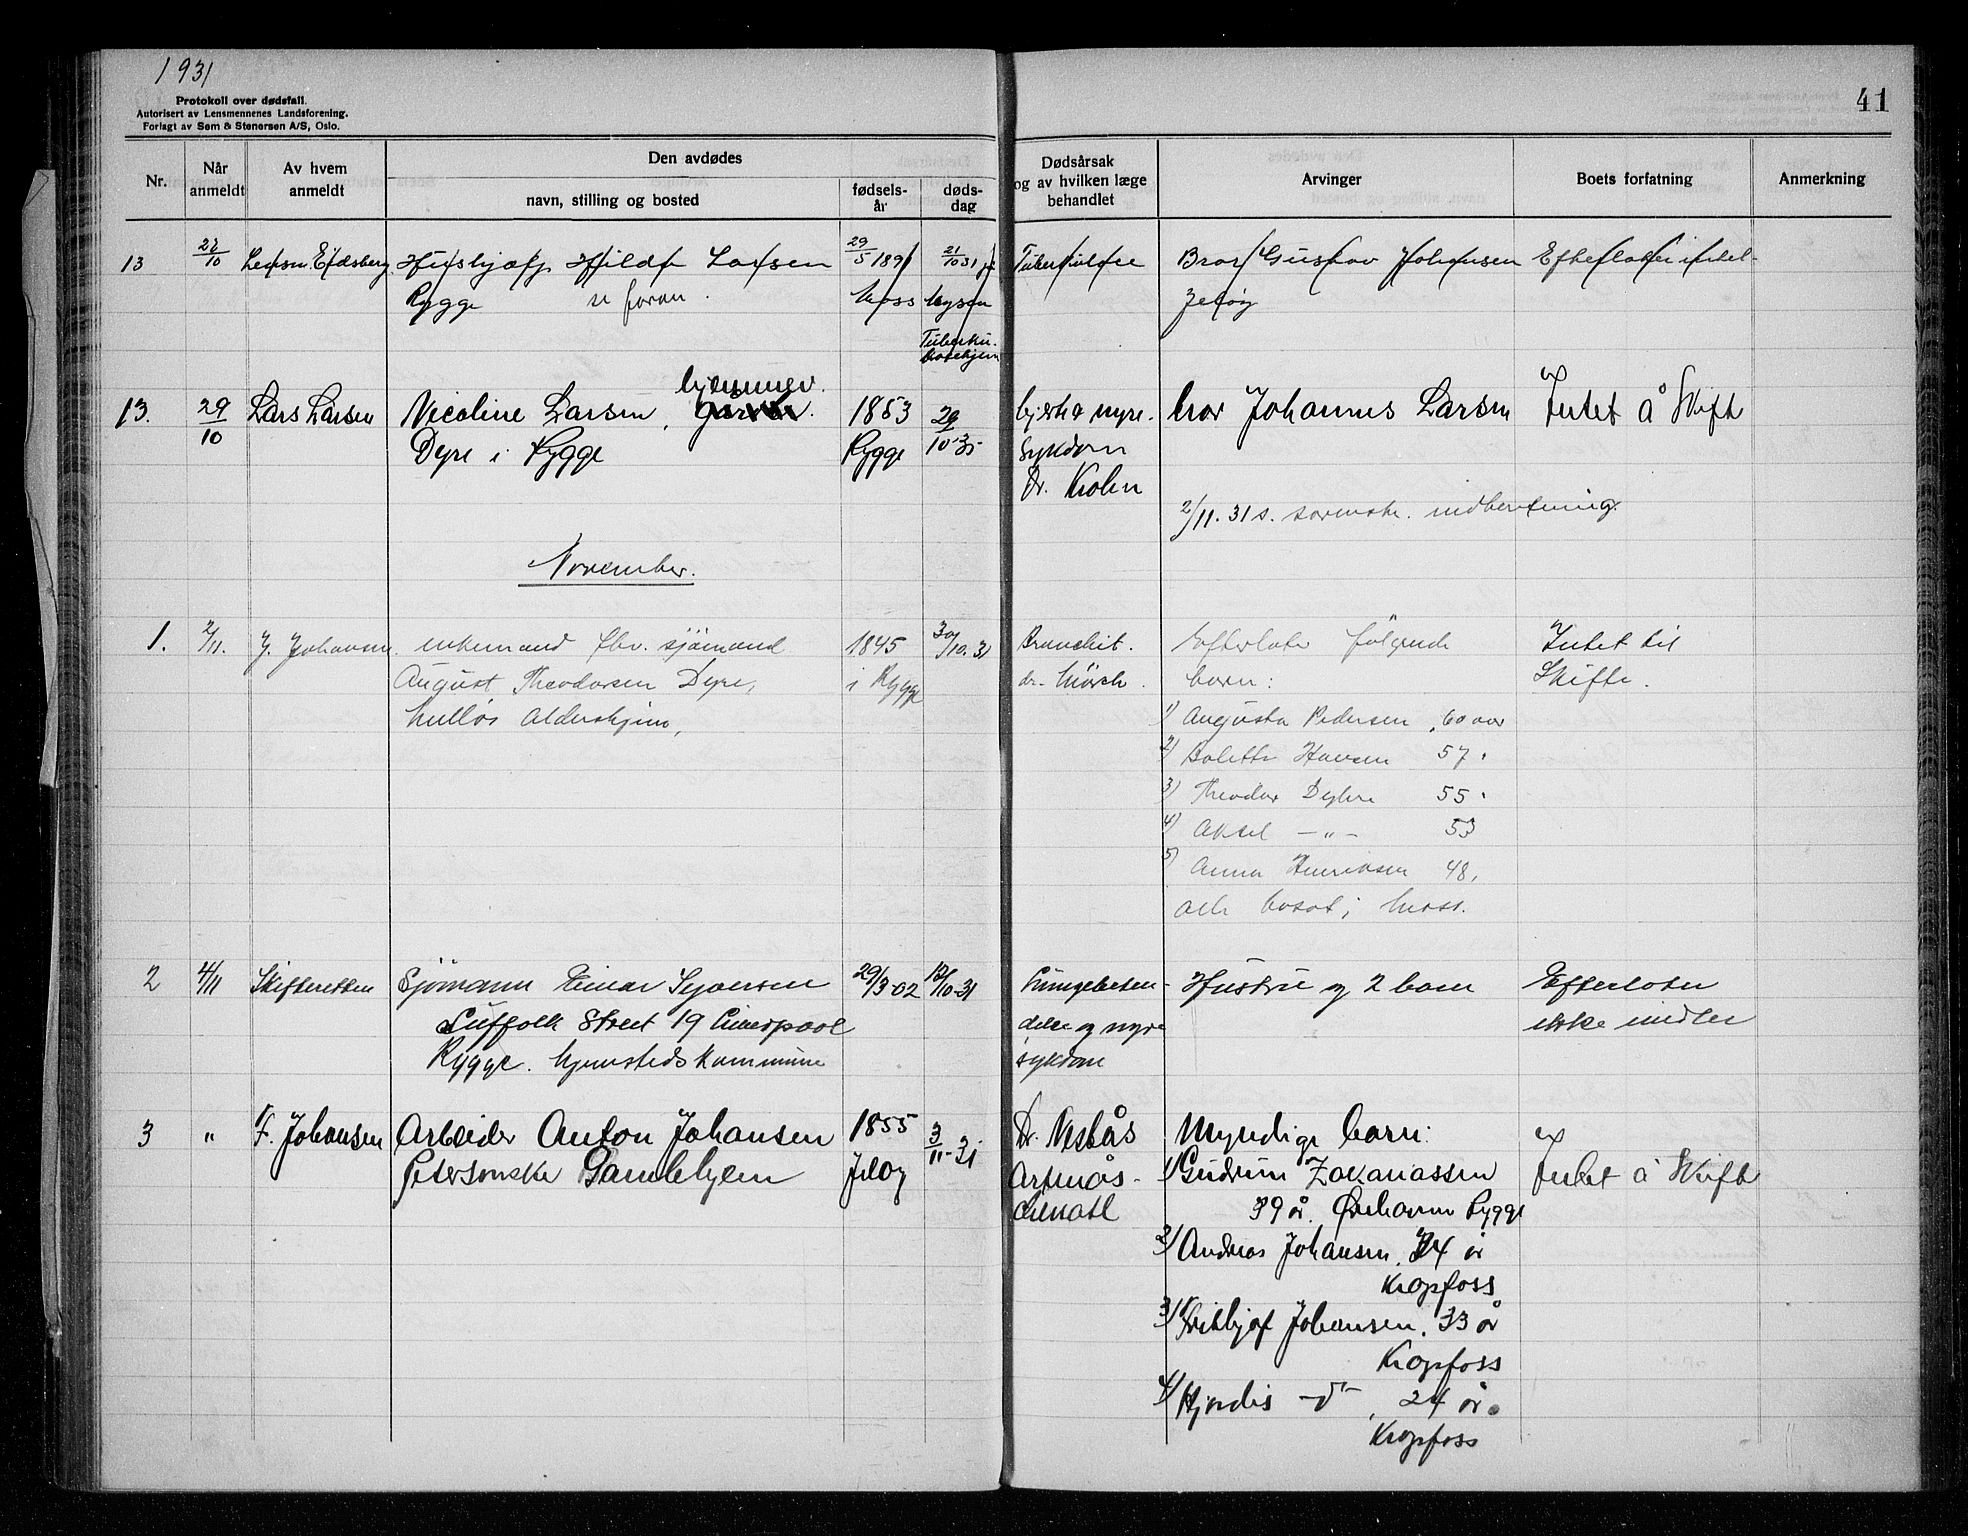 1931
Protokoll over dødsfall.
Autorisert av Lensmennenes Landsforening.
Forlagt av Sem & Stenersen A/S, Oslo.
41
Nr.
Når anmeldt
Av hvem anmeldt
Den avdødes
navn, stilling og bosted
fødsels-år
døds-dag
Dødsårsak og av hvilken læge behandlet
Arvinger
Boets forfatning
Anmerkning
13 22/10 Lensm. Eidsberg Hushjælp Hilda Larsen 29/5 1891 21/10 31 Tuberkulose Bror Gustav Johansen Efterlater intet
Rygge se foran. Moss Mysen Jeløy
Tuberku-
losehjem
hjemmev.
13. 29/10 Lars Larsen Nicoline Larsen, 1853 29/10-31 Hjerte & nyre- Mor Johannes Larsen Intet å skift
Dyre i Rygge Rygge sykdom
Dr. Kolen
2/11. 31 s. sorenskr. indberetning.
November.
1. 2/11. J. Johansen. enkemand fhv. sjömand 1845 30/10.31 Bronchit. Efterlater fölgende Intet til
August Theodorsen Dyre, i Rygge dr. Mörch. barn: Skifte.
Aldershjem,
1) Augusta Pedersen, 60 aar
2) Bolette Hansen 57 "
3) Theodor Dyhre 55 "
4) Aksel — " — 53
5) Anna Henriksen 48,
alle bosat i Moss.
2 4/11 Skifteretten Sjömann Einar Syversen 29/3-02 12/10-31 Lungebeten- Hustru og 2 barn Efterlater
Suffolk Street 19 Liverpool delse og nyre ikke midler
Rygge. Hjemstedskommune sykdom
3 " F. Johansen Arbeider Anton Johansen 1855 3/11-31 Dr. Nesbås Myndige barn:
Petersonske Gamlehjem Jeløy 1) Gudrun Zakariassen Intet å skift
39 år. Ørehavn Rygge
2) Andreas Johansen, 34 år
Kropfoss
3) Fritjof Johansen, 33 år
Kropfoss
4) Hjørdis — " — 24 år.
Kropfoss